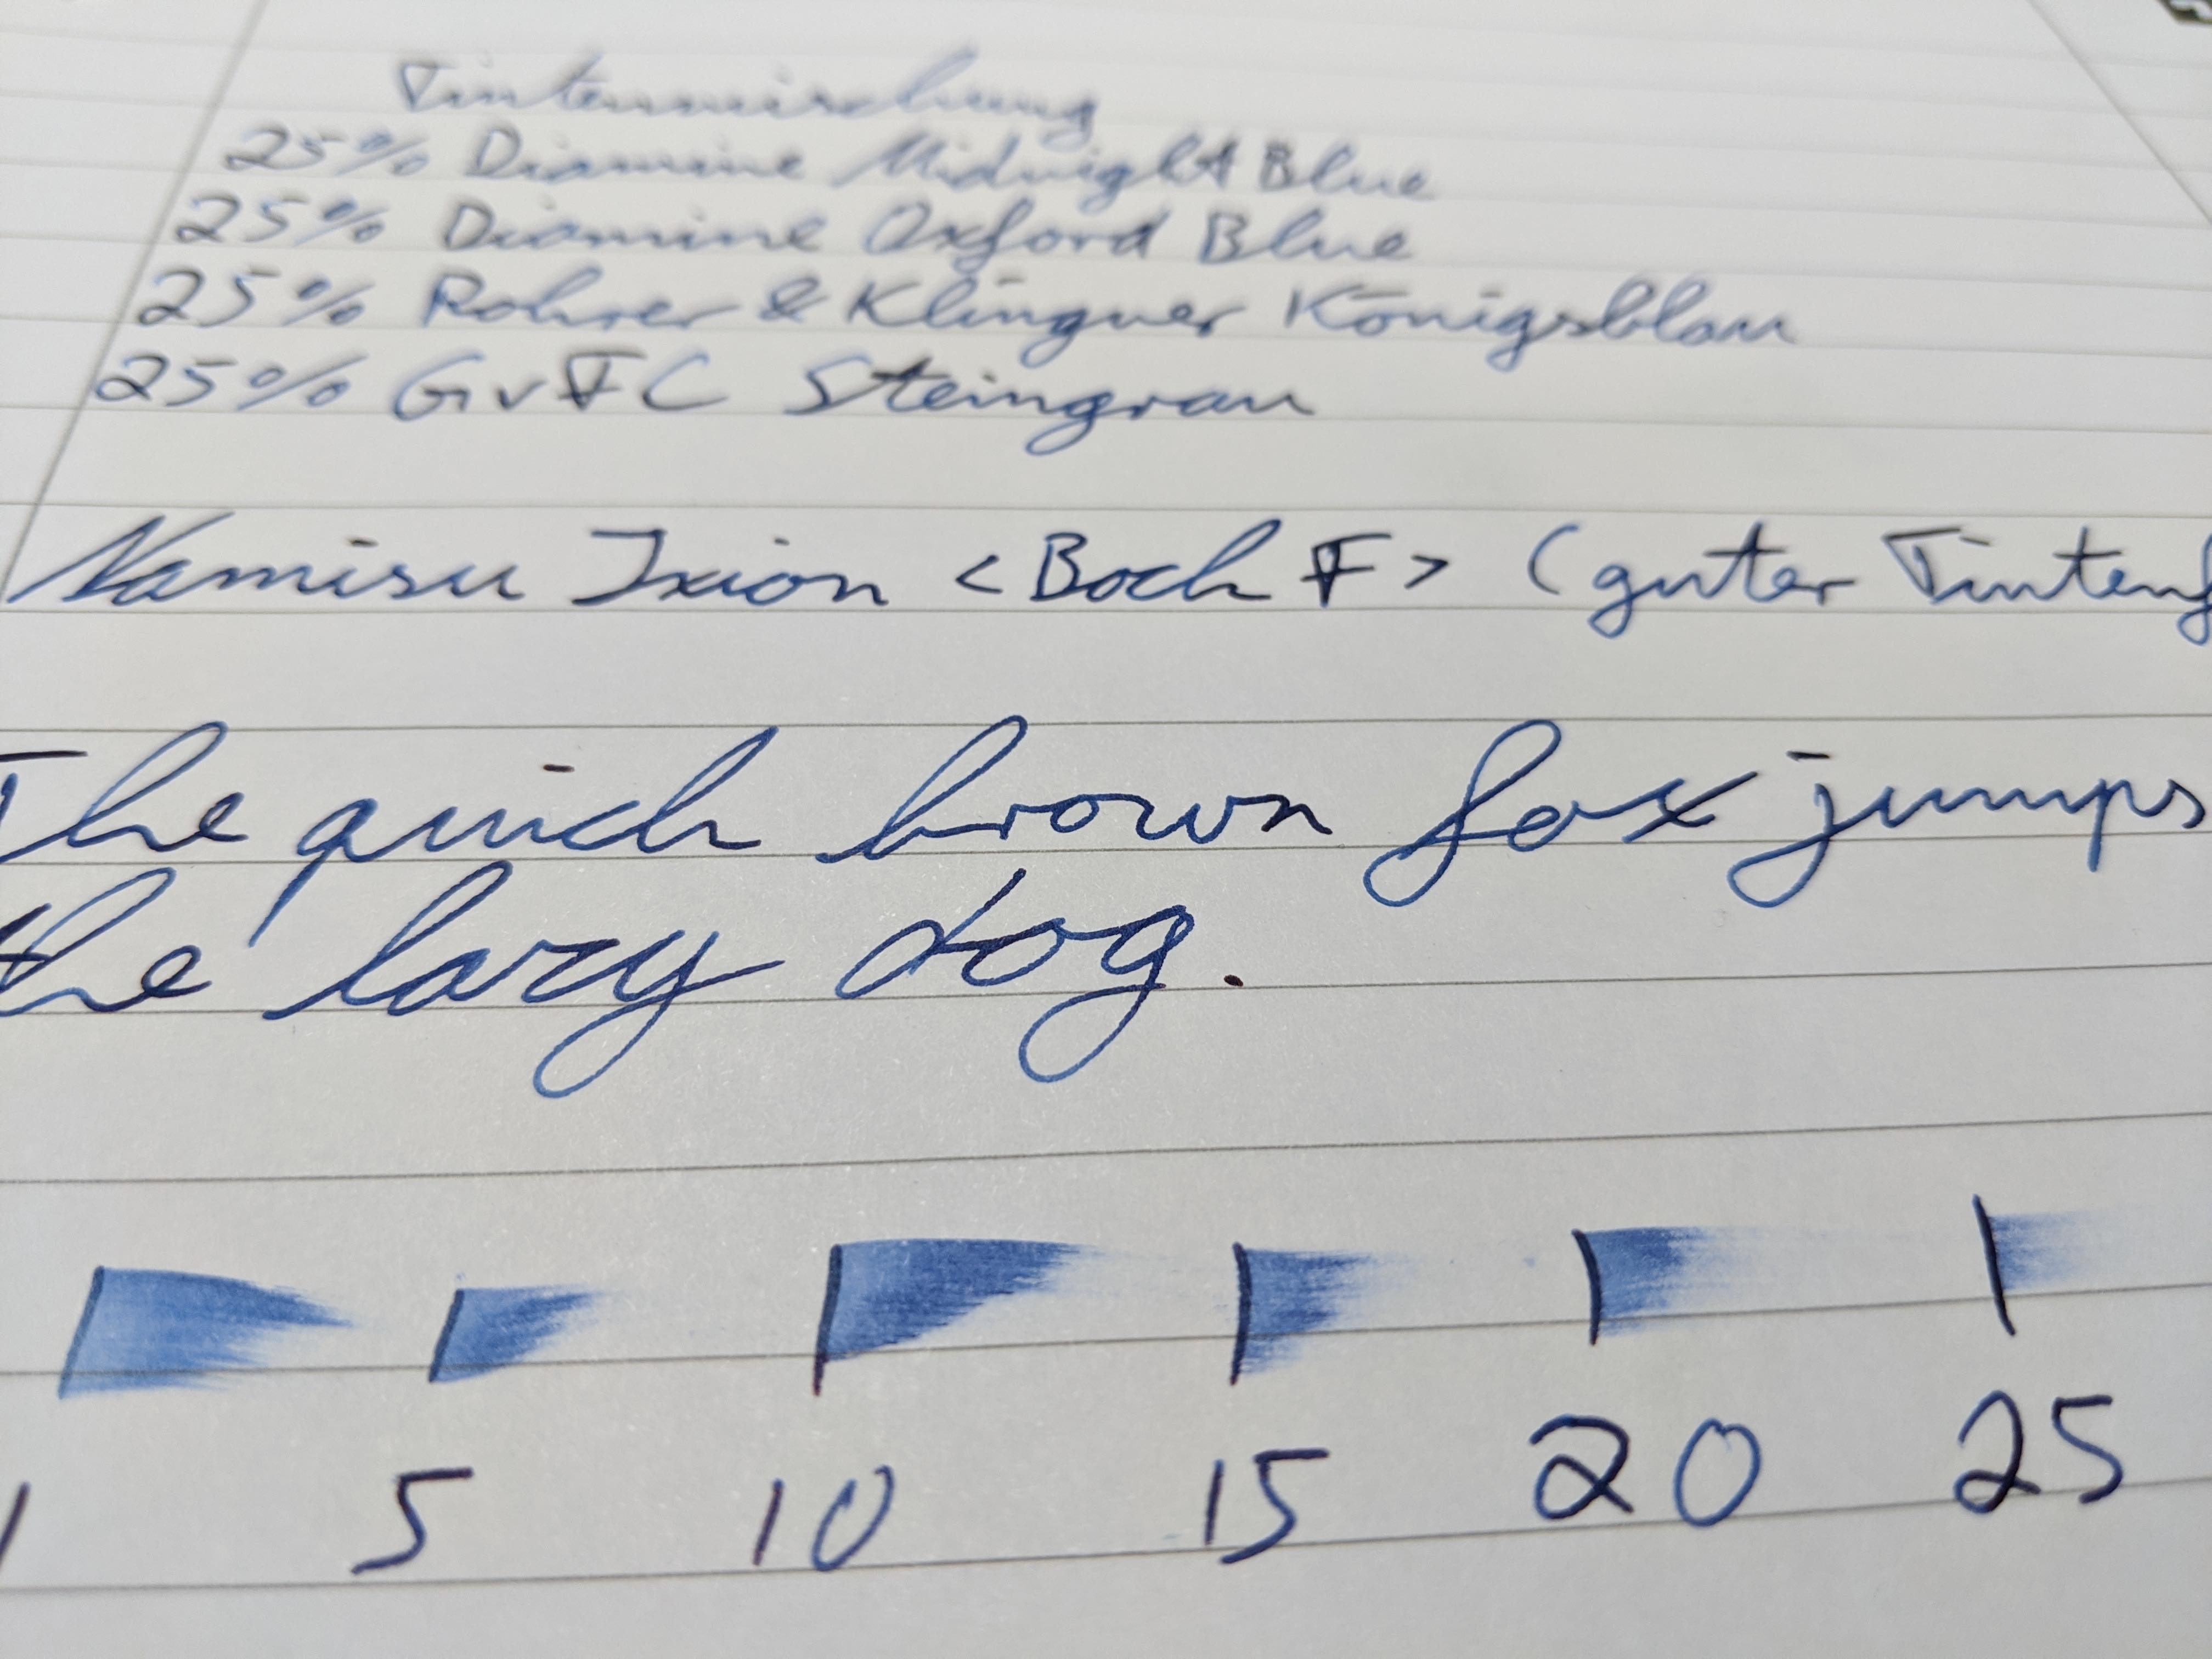 Tintenmischung
25% Diamine Midnight Blue
25% Diamine Oxford Blue
25% Rohrer & Klingner Königsblau
25% GvFC Steingrau
Namisu Ixion <Bock F> (guter Tintenf
The quick brown fox jumps
the lazy dog.
1 5 10 15 20 25